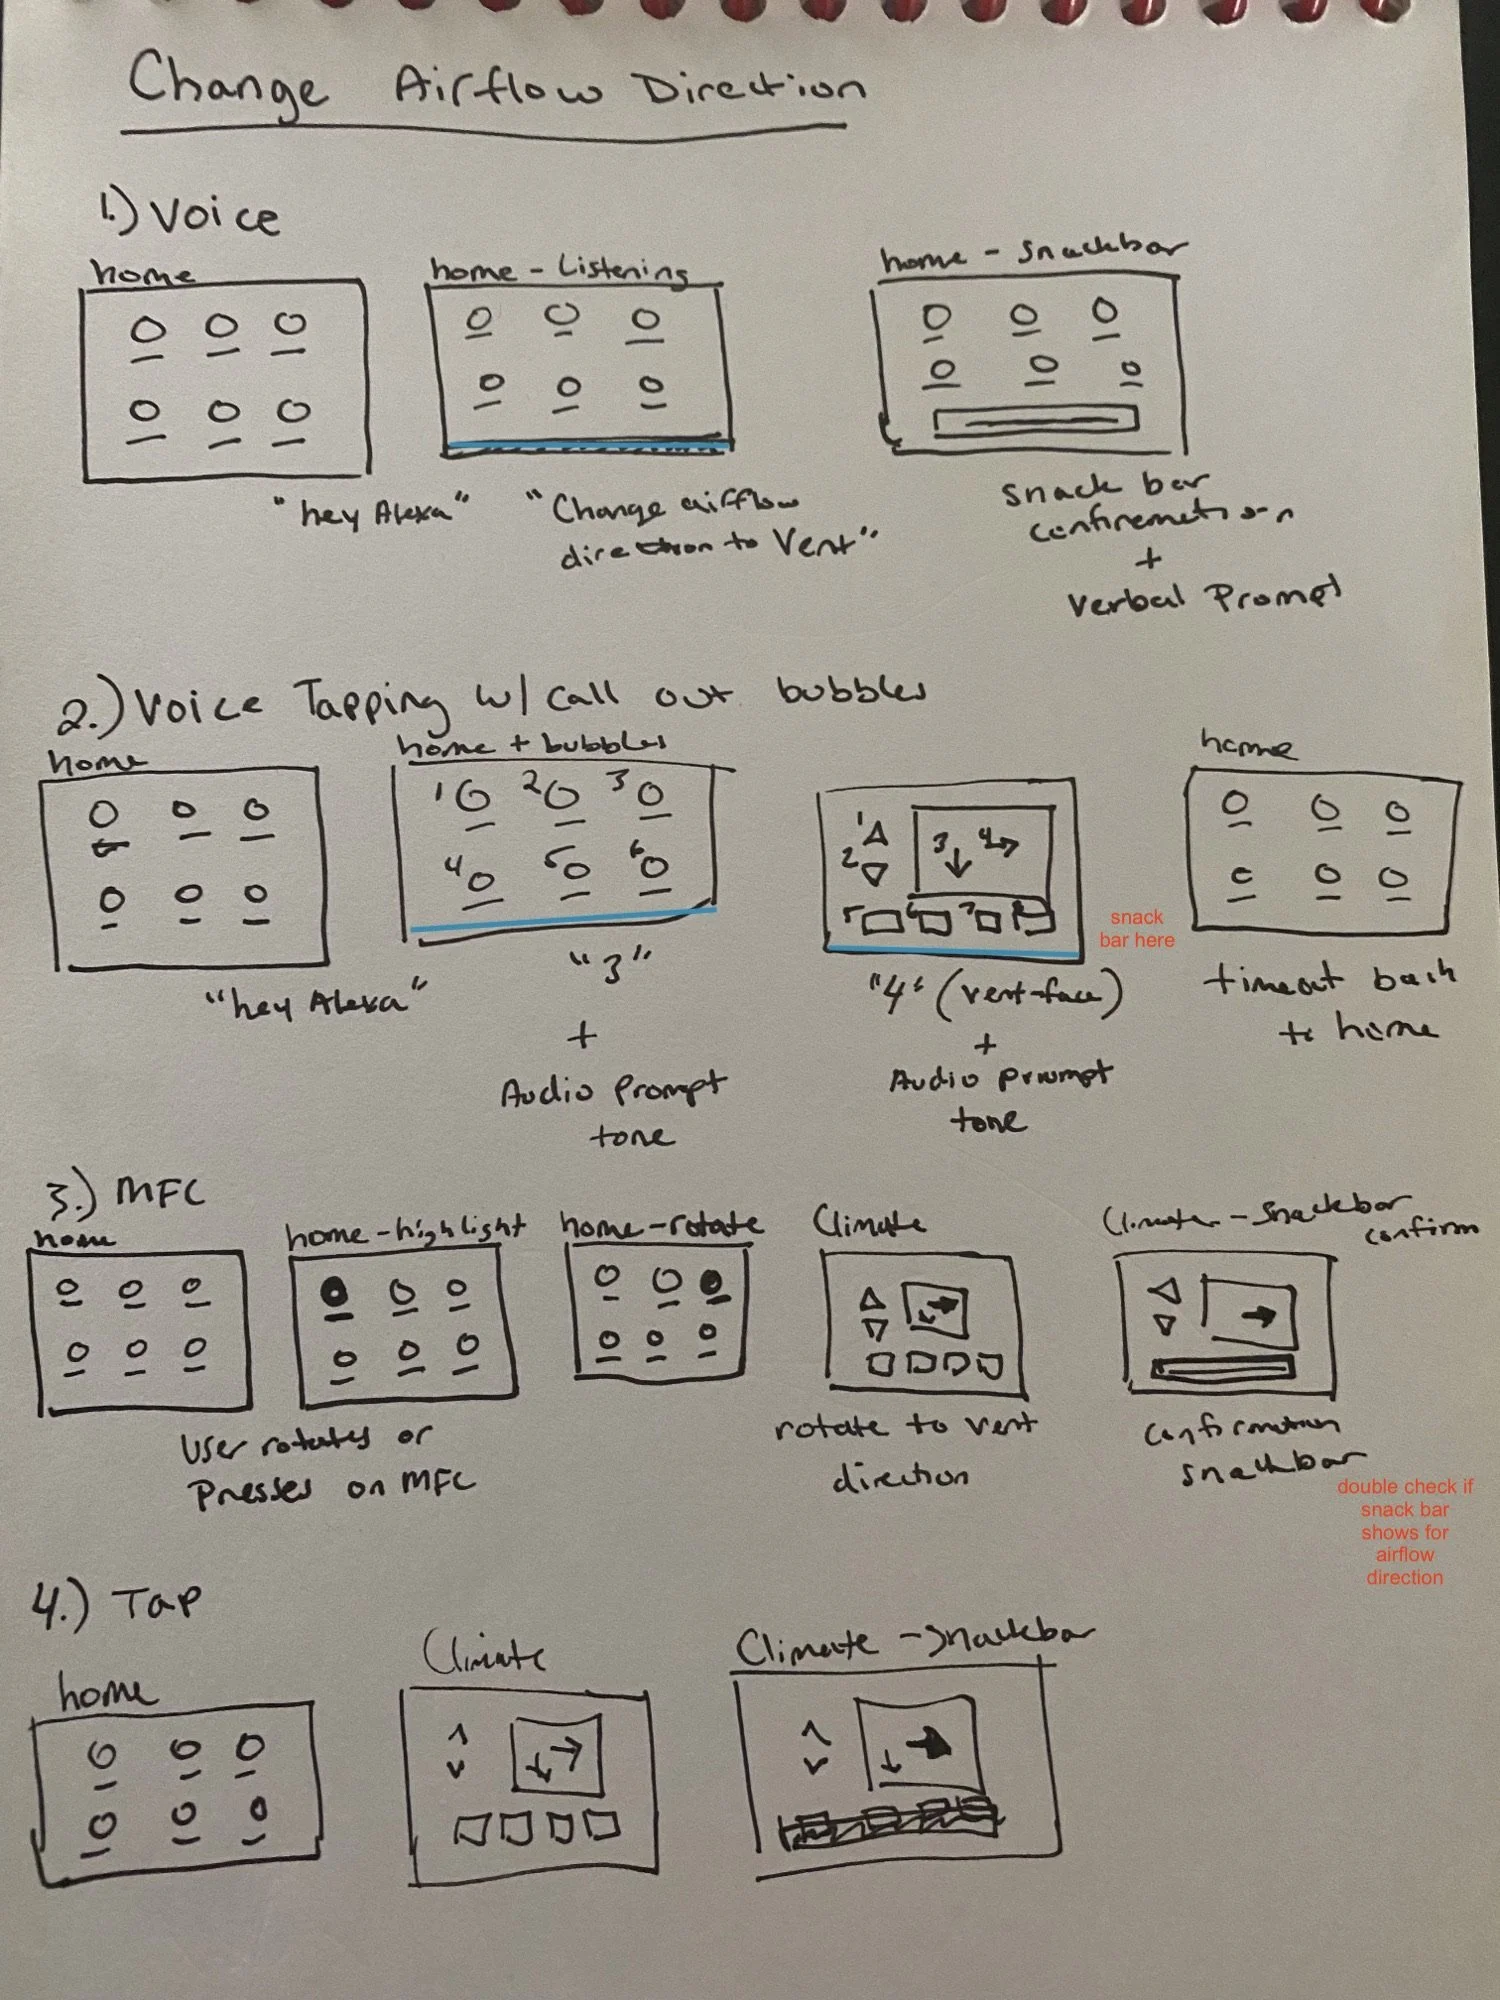 Change Airflow Direction
1.) Voice
home
home - Listening
home - snackbar
"hey Alexa"
"Change airflow
direction to Vent"
snack bar
confiremation
+
Verbal Prompt
2.) Voice Tapping w/ call out bubbles
home
home + bubbles
home
1 2 3
4 5 6
1
2
3 4
5 6 7 8
snack
bar here
"hey Alexa"
"3"
+
Audio Prompt
tone
"4" (vent-face)
+
Audio prompt
tone
timeout back
to home
3.) MFC
home
home-highlight
home-rotate
Climate
Climate - Snackbar
confirm
User rotates or
Presses on MFC
rotate to vent
direction
Confirmation
snackbar
double check if
snack bar
shows for
airflow
direction
4.) Tap
home
Climate
Climate - snackbar